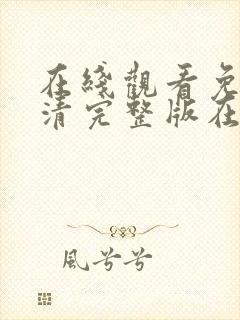 在綫觀看免
清完整版在
風兮兮